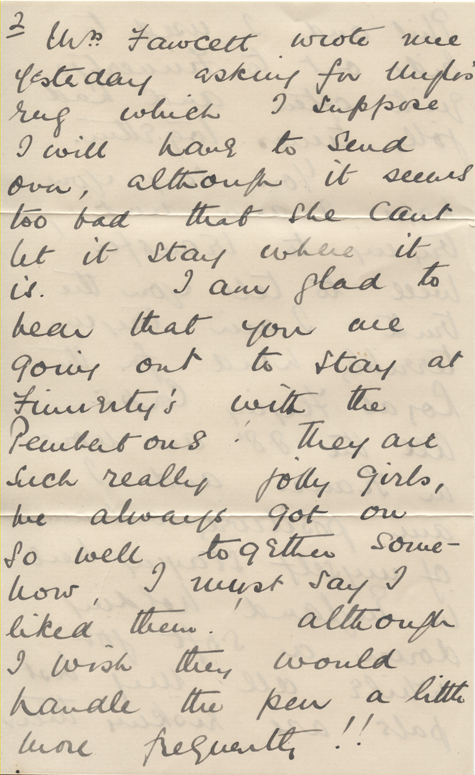 2
Mrs Fawcett wrote me
yesterday asking for Unylos'
rug which I suppose
I will have to send
over, although it seems
too bad that she Cant
let it stay where it
is. I am glad to
hear that you are
going out to stay at
Finnerty's with the
Pembertons! they are
such really jolly girls,
we always got on
so well together some-
how, I must say I
liked them. although
I wish they would
handle the pen a little
more frequently!!